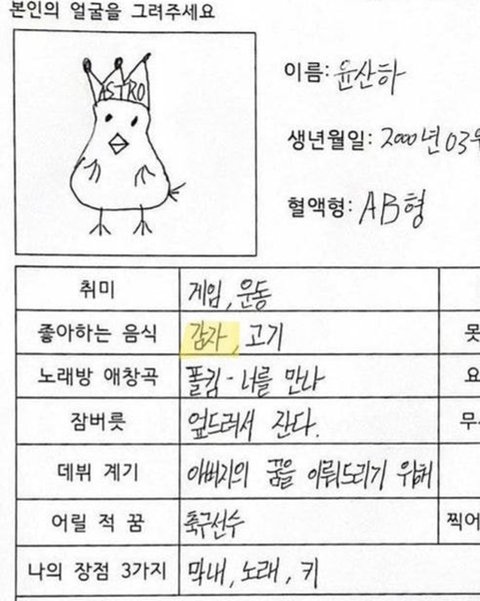 본인의 얼굴을 그려주세요
ASTRO
이름: 윤산하
생년월일: 2000년 03월
혈액형: AB형
취미 게임, 운동
좋아하는 음식 감자, 고기 못
노래방 애창곡 폴킴 - 너를 만나 요
잠버릇 엎드려서 잔다. 무
데뷔 계기 아버지의 꿈을 이뤄드리기 위해
어릴 적 꿈 축구선수 찍어
나의 장점 3가지 막내, 노래, 키